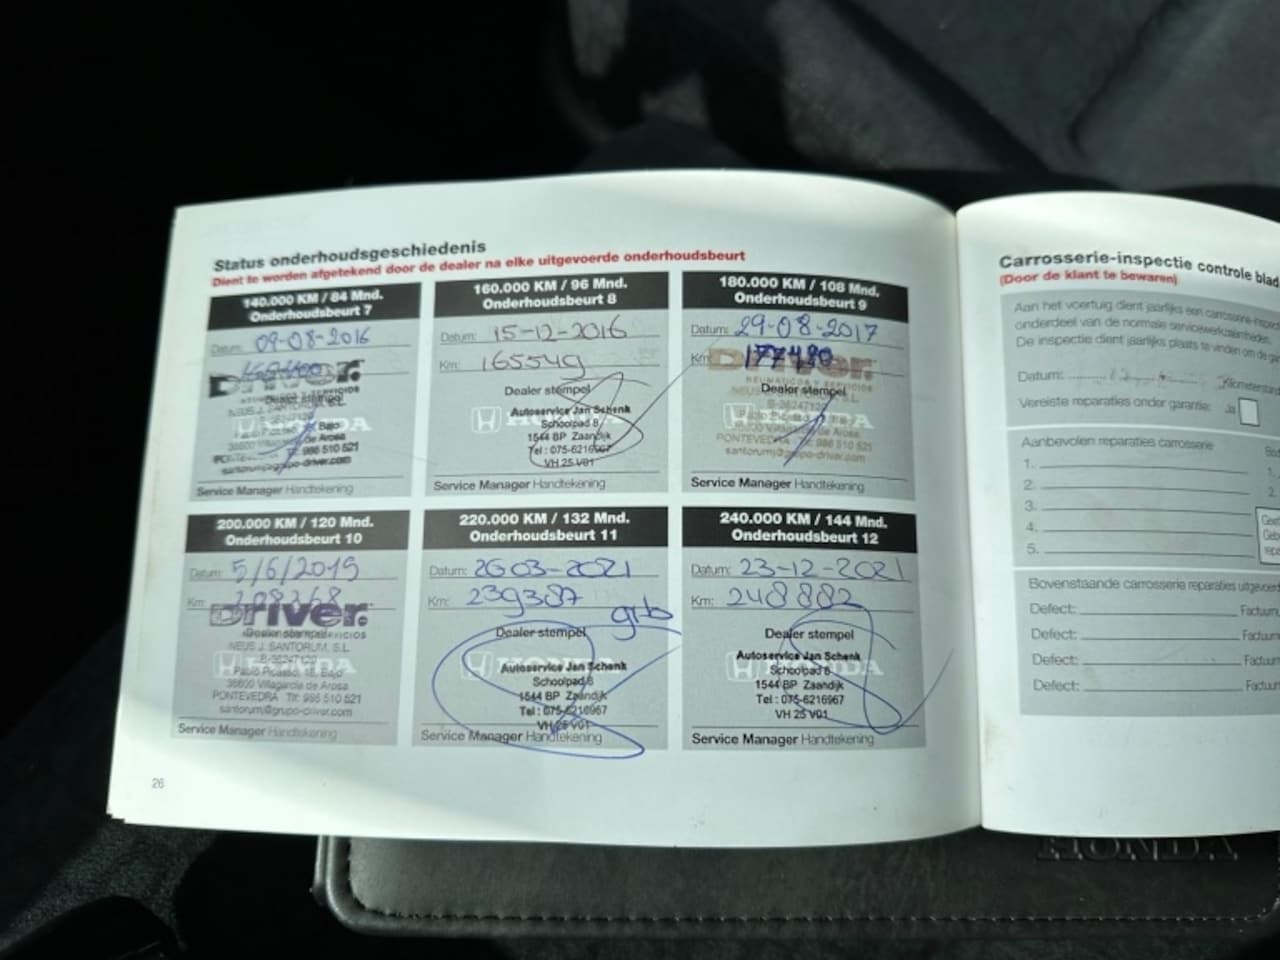 Status onderhoudsgeschiedenis
Dient te worden afgetekend door de dealer na elke uitgevoerde onderhoudsbeurt
140.000 KM / 84 Mnd.
Onderhoudsbeurt 7
Datum: 09-08-2016
Dealer stempel
NEUS J. SANTORUM, S.L.
36600 Villagarcia de Arosa
986 510 521
santorum@grupo-driver.com
Service Manager Handtekening
160.000 KM / 96 Mnd.
Onderhoudsbeurt 8
Datum: 15-12-2016
Km: 165549
Dealer stempel
HONDA
Autoservice Jan Schenk
Schoolpad 8
1544 BP Zaandijk
Tel : 075-6216967
VH 25 V01
Service Manager Handtekening
180.000 KM / 108 Mnd.
Onderhoudsbeurt 9
Datum: 29-08-2017
Km: 177480
DRIVER.
NEUMATICOS Y SERVICIOS
Dealer stempel
B-36247120
HONDA
36600 Villagarcia de Arosa
PONTEVEDRA Tlf: 986 510 521
santorum@grupo-driver.com
Service Manager Handtekening
200.000 KM / 120 Mnd.
Onderhoudsbeurt 10
Datum: 5/6/2019
Km: 208368
DRIVER.
Dealer stempel
NEUS J. SANTORUM, S.L.
B-36247120
HONDA
Pablo Picasso, 18, Bajo
36600 Villagarcia de Arosa
PONTEVEDRA Tlf: 986 510 521
santorum@grupo-driver.com
Service Manager Handtekening
220.000 KM / 132 Mnd.
Onderhoudsbeurt 11
Datum: 26-03-2021
Km: 239387
grb
Dealer stempel
HONDA
Autoservice Jan Schenk
Schoolpad 8
1544 BP Zaandijk
Tel : 075-6216967
VH 25 V01
Service Manager Handtekening
240.000 KM / 144 Mnd.
Onderhoudsbeurt 12
Datum: 23-12-2021
Km: 248882
Dealer stempel
HONDA
Autoservice Jan Schenk
Schoolpad 8
1544 BP Zaandijk
Tel : 075-6216967
VH 25 V01
Service Manager Handtekening
26
Carrosserie-inspectie controle blad
(Door de klant te bewaren)
Aan het voertuig dient jaarlijks een carrosserie-inspectie
onderdeel van de normale servicewerkzaamheden.
De inspectie dient jaarlijks plaats te vinden om de
Datum:
Vereiste reparaties onder garantie: Ja
Aanbevolen reparaties carrosserie
1.
2.
3.
4.
5.
Bovenstaande carrosserie reparaties uitgevoerd
Defect: Factuur
Defect: Factuur
Defect: Factuur
Defect: Factuur
HONDA